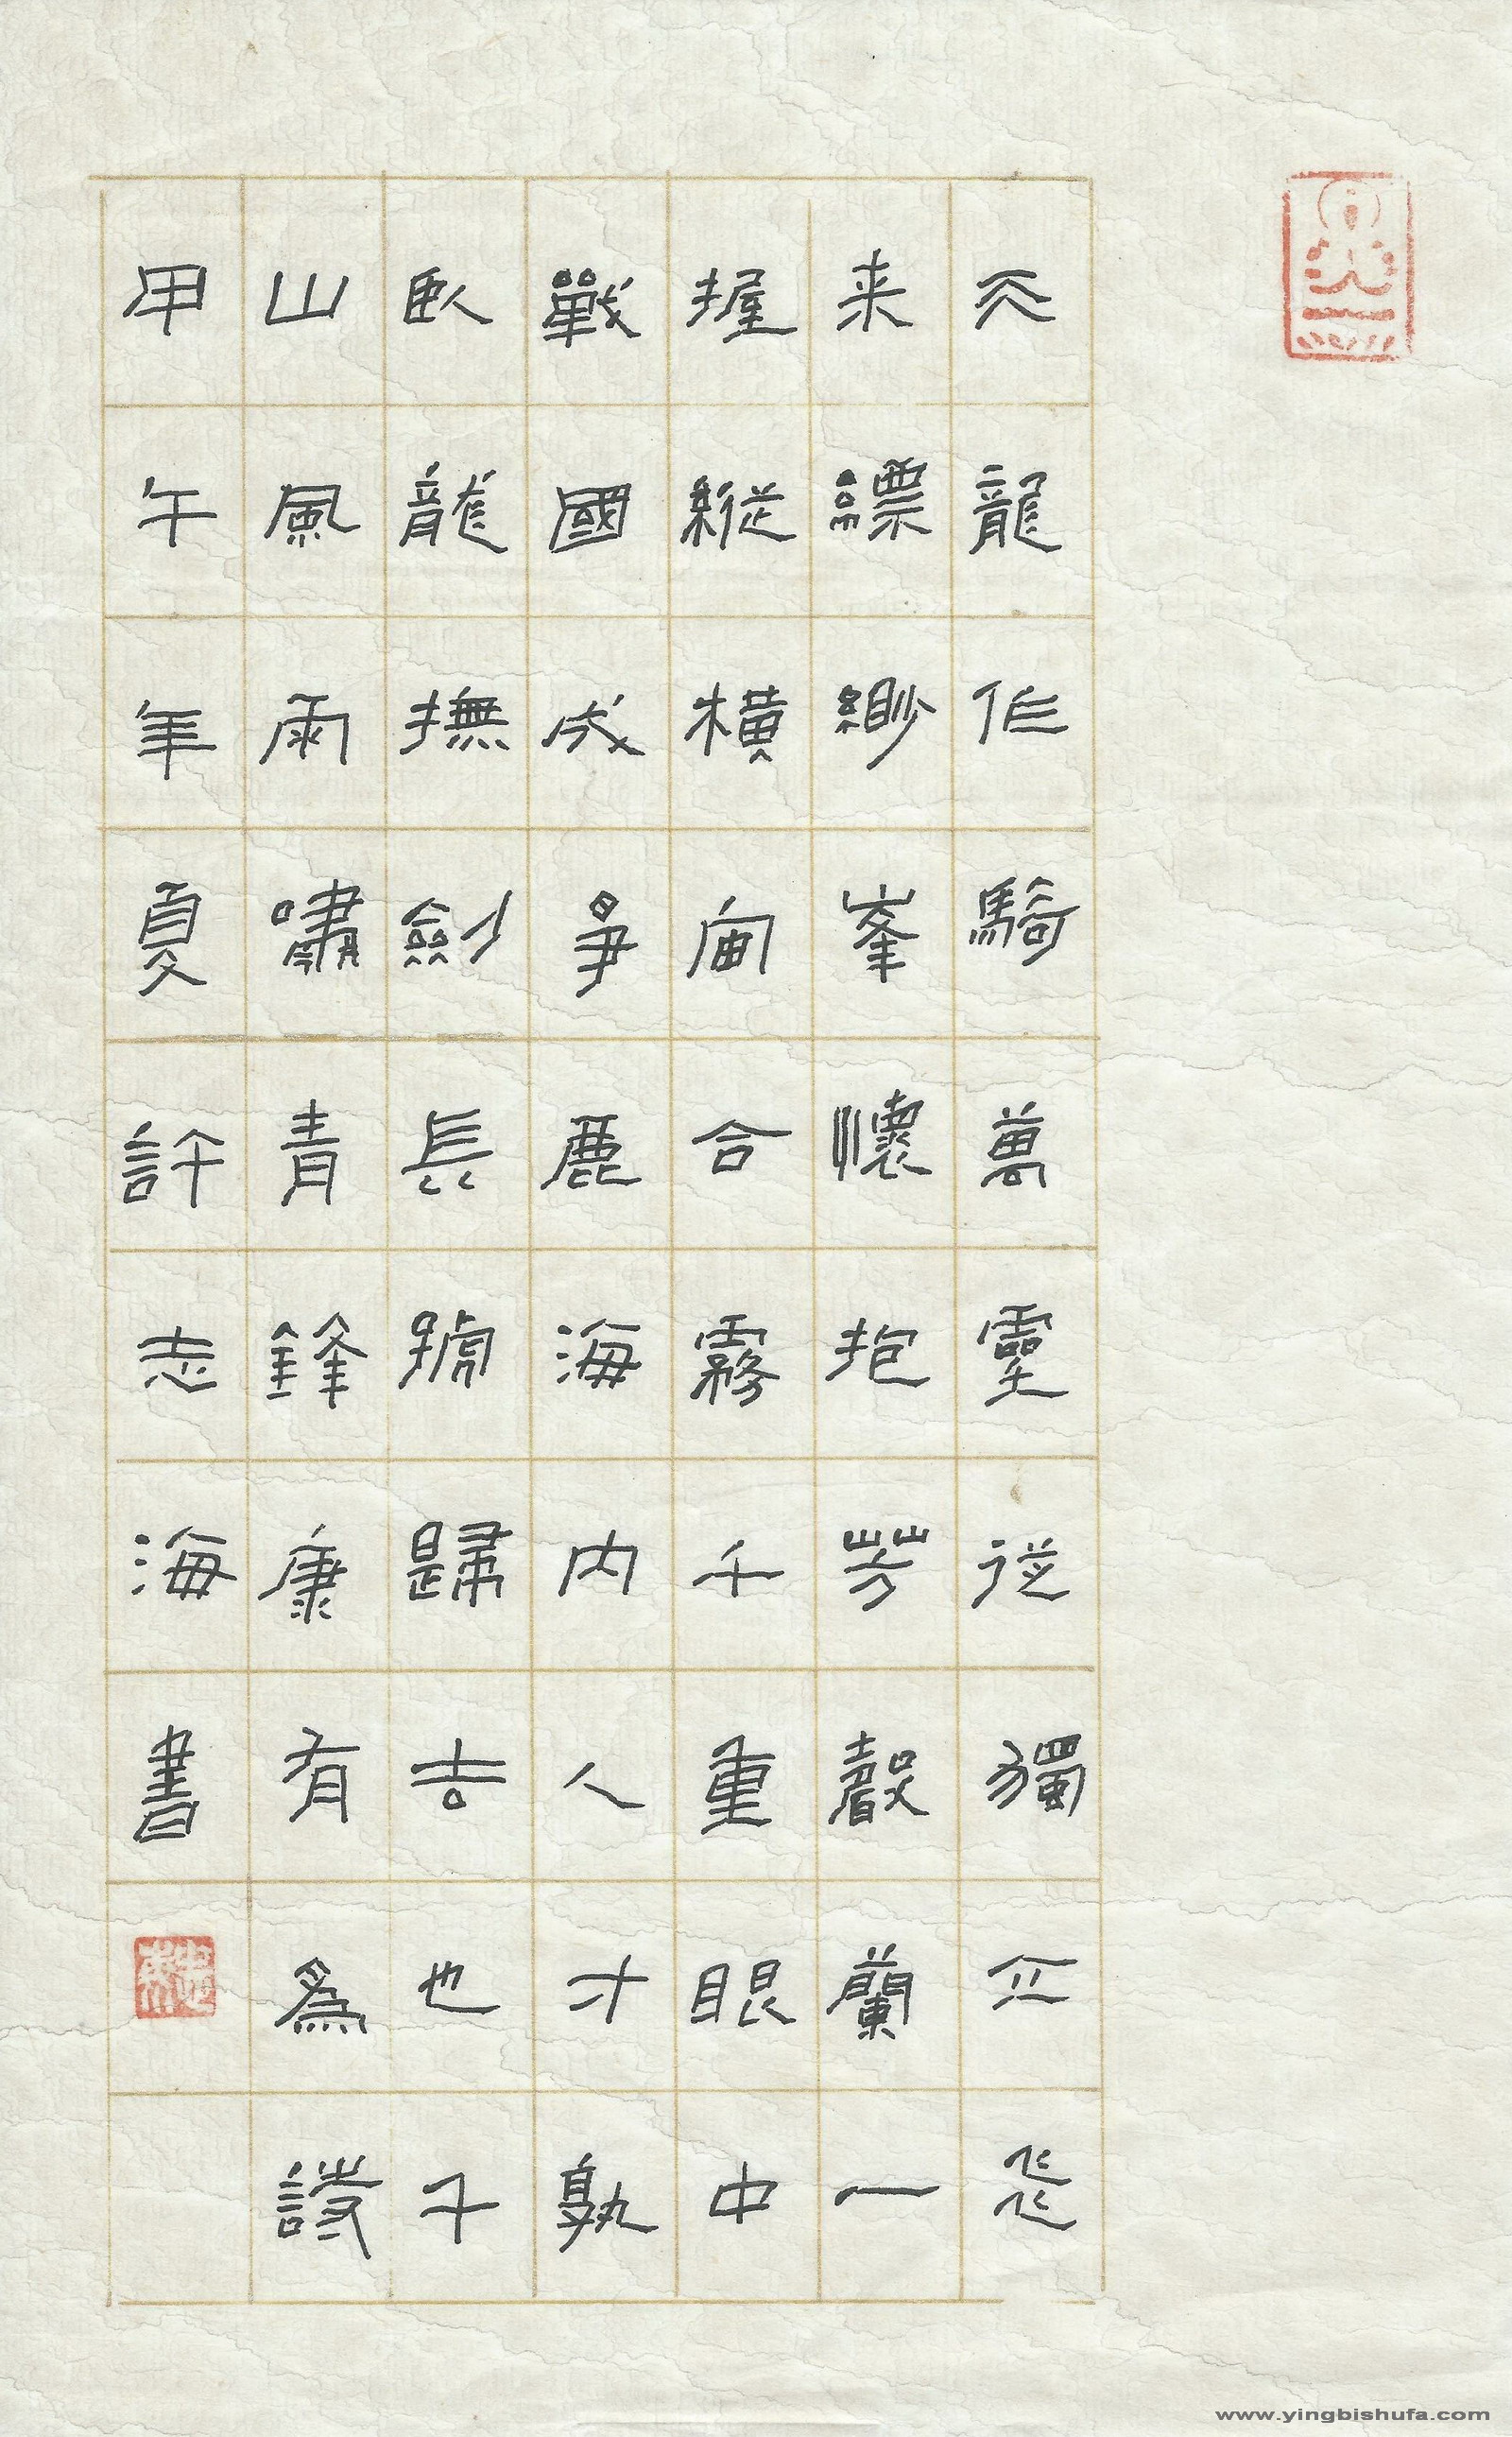 天龍作騎萬靈從獨立飛
来縹緲峯懷抱芳馨蘭一
握縱橫宙合霧千重眼中
戰國成爭鹿海内人才孰
臥龍撫劍長號歸去也千
山風雨嘯青鋒康有爲詩
甲午年夏許志海書
www.yingbishufa.com